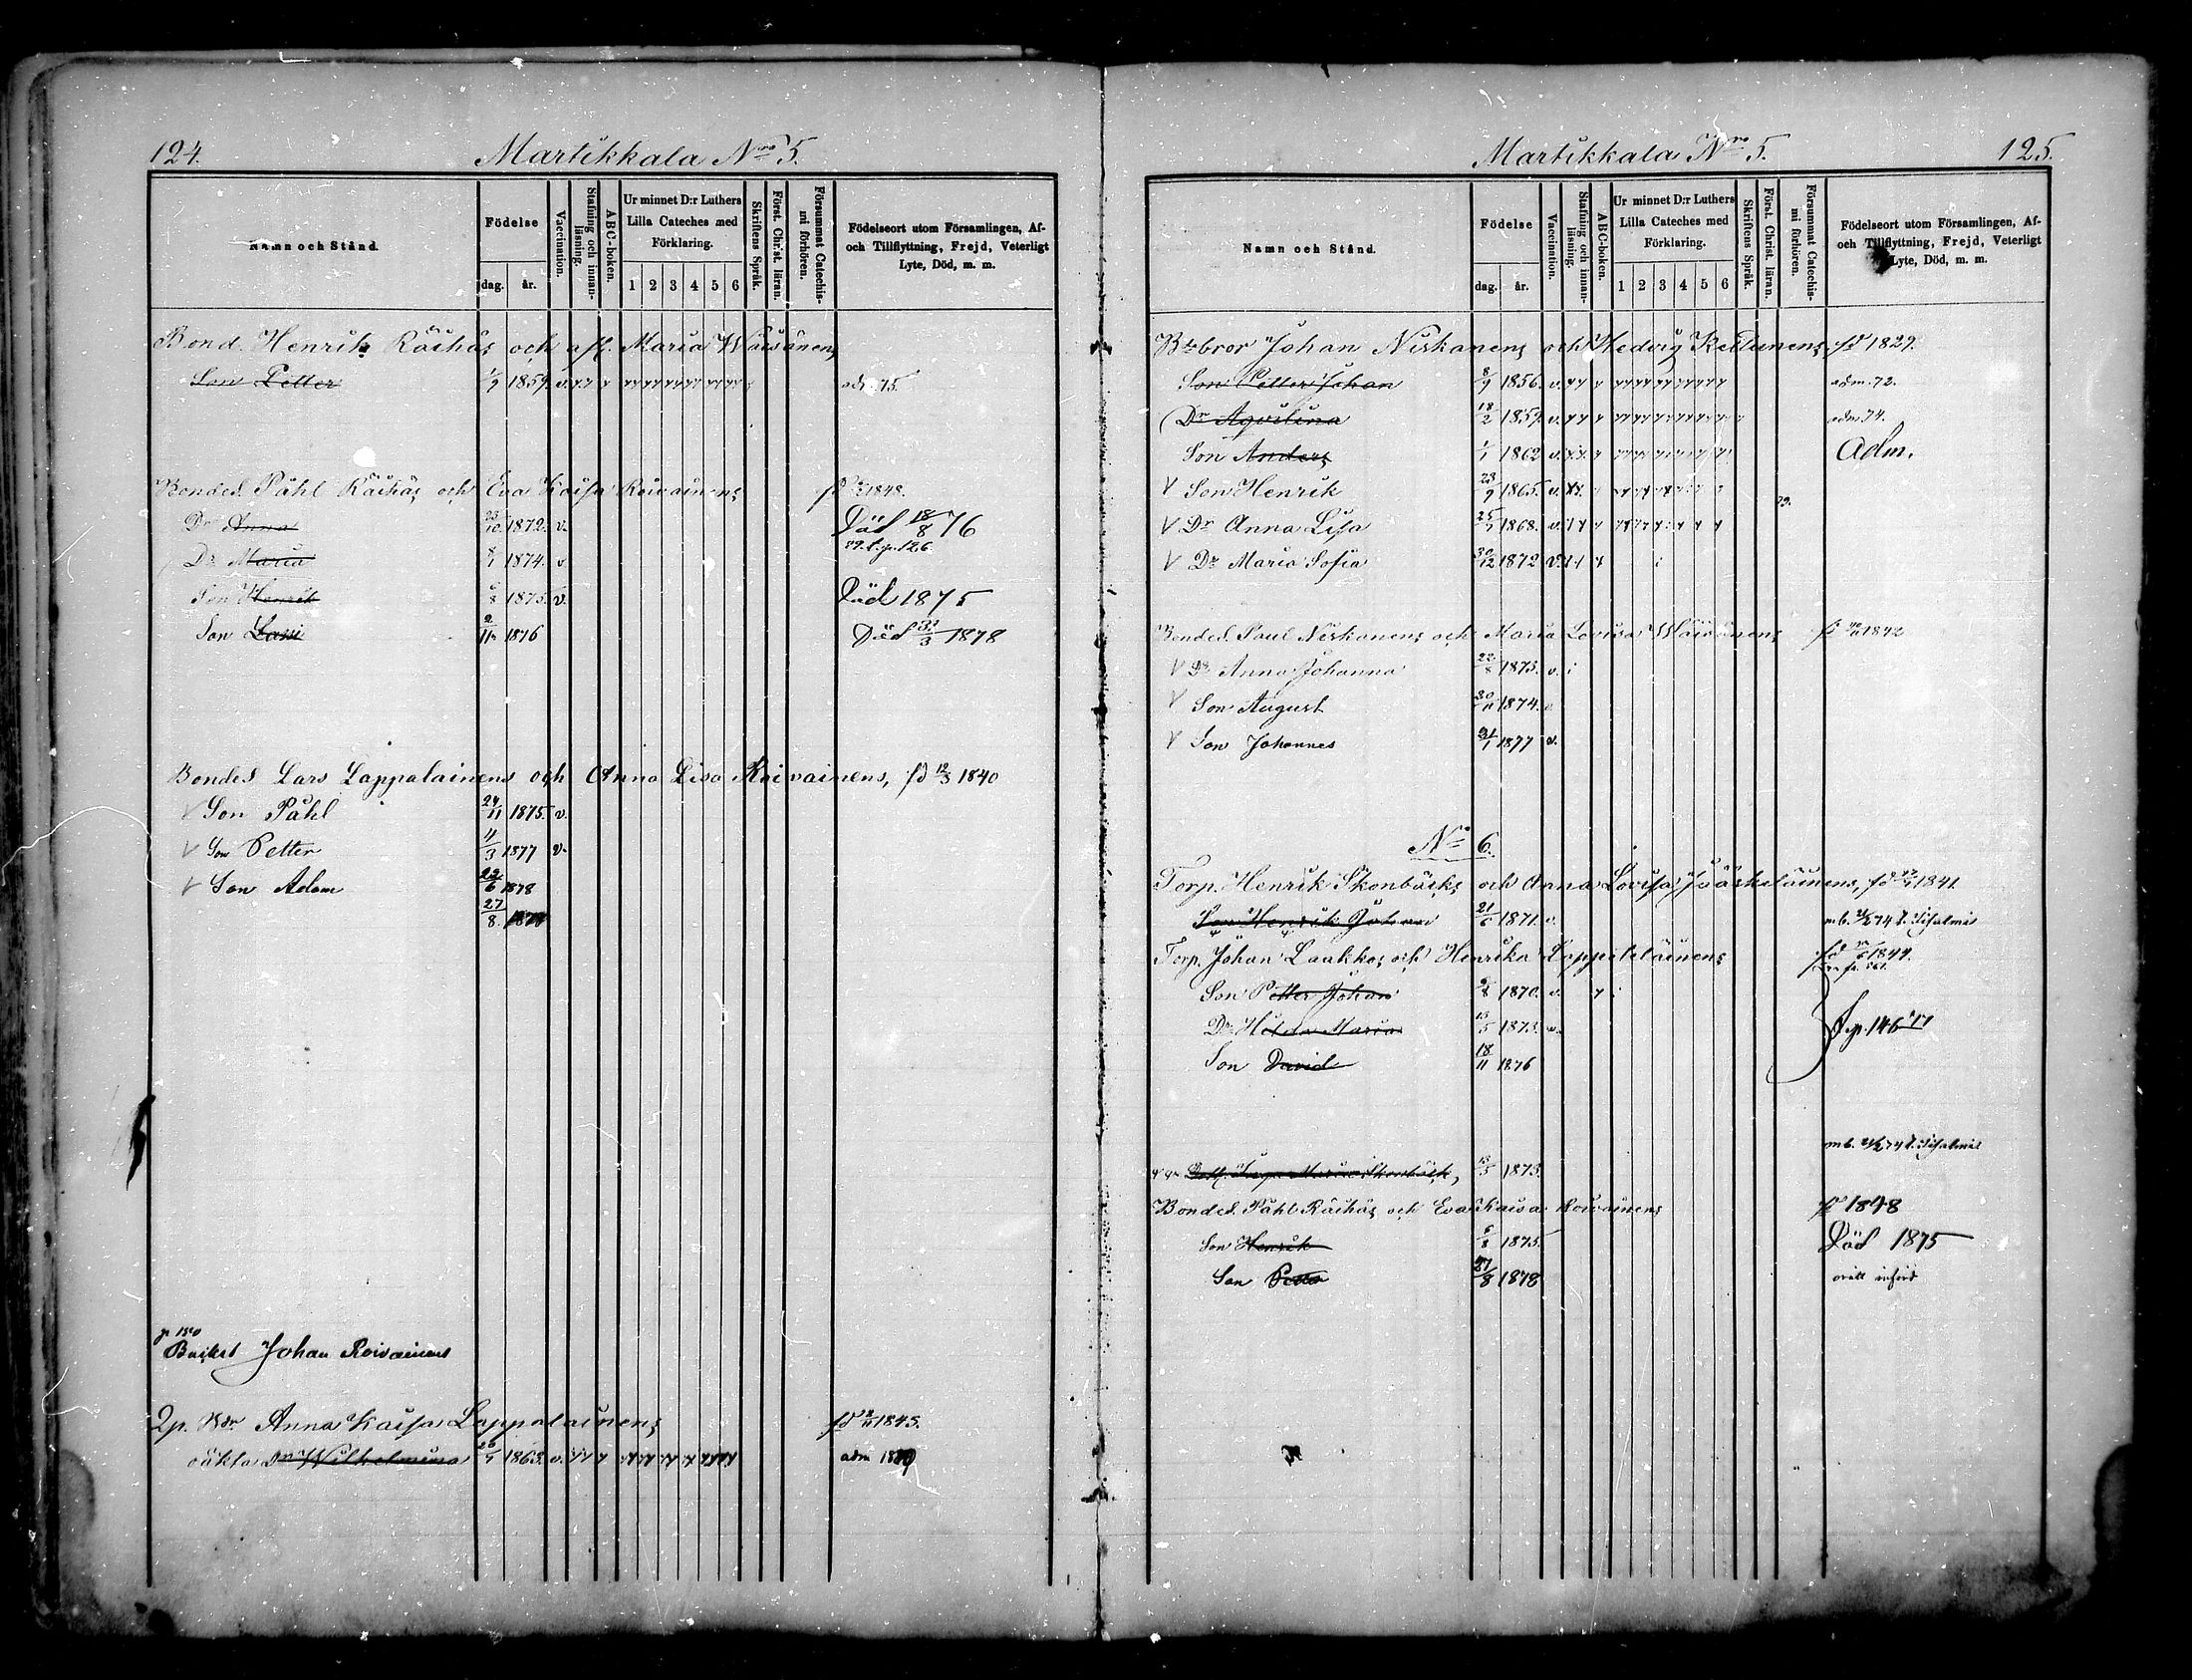 124. Martikkala Nro 5.
Namn och Stånd.
Födelse
dag. år.
Vaccination.
Stafning och innan-läsning.
ABC-boken.
Ur minnet D:r Luthers Lilla Cateches med Förklaring.
1 2 3 4 5 6
Skriftens Språk.
Först. Christ. läran.
Försummat Catechis-mi förhören.
Födelseort utom Församlingen, Af- och Tillflyttning, Frejd, Veterligt Lyte, Död, m. m.
Bond. Henrik Räihäs och afl. Maria Wäisänens
Son Petter 1/9 1859. v. adm. 75.
Bonded. Påhl Räihäs och Eva Kaisa Roivainens fd 1848.
Dr Anna 23/10 1872. v. Död 18/8 76
Dr Maria 8/1 1874. v
Son Henrik 6/8 1875. v. Död 1875
Son Lassi 2/11 1876 Död 31/3 1878
Bonded. Lars Lappalainens och Anna Lisa Roivainens, fd 12/3 1840
V Son Påhl 24/11 1875. v.
V Son Petter 4/3 1877 v.
V Son Adam 22/6 1878
27/8. 1878
p 150
Johan Roivainens
Anna Kaisa Lappalainens fd 1845.
oäkta Dr Wilhelmina 1863. v. adm 1880
Martikkala Nro 5. 125.
Namn och Stånd.
Födelse
dag. år.
Vaccination.
Stafning och innan-läsning.
ABC-boken.
Ur minnet D:r Luthers Lilla Cateches med Förklaring.
1 2 3 4 5 6
Skriftens Språk.
Först. Christ. läran.
Försummat Catechis-mi förhören.
Födelseort utom Församlingen, Af- och Tillflyttning, Frejd, Veterligt Lyte, Död, m. m.
Bdebror Johan Niskanens och Hedvig Keltunens, fd 1829.
Son Petter Johan 8/9 1856. v. adm. 72.
Dr Aqvilina 18/2 1859. v. adm. 74.
Son Anders 1/1 1862 v. Adm.
V Son Henrik 23/9 1865. v.
V Dr Anna Lisa 1868. v.
V Dr Maria Sofia 30/12 1872 v.
Bonded. Paul Niskanens och Maria Lovisa Wäisänens fd 1842
V Dr Anna Johanna 1873. v.
V Son August 30/11 1874.
V Son Johannes 31/1 1877 v.
No 6.
Torp. Henrik Skonbäcks och Anna Lovisa Jääskeläinens, fd 1841.
Son Henrik Johan 21/6 1871. v. mb. 74 t. Idesalmi
Torp. Johan Laakkos och Henrika Lappeteläinens fd 1844.
Son Petter Johan 1870. v.
Dr Hilda Maria 13/5 1873. v.
Son David 18/11 1876
p. 146
mb. 74 t. Idesalmi
Maria Skonbäck, 13/5 1873.
Bonded. Påhl Räihäs och Eva Kaisa Roivainens fd 1848
Son Henrik 6/8 1875. Död 1875
Son Petter 27/8 1878 orätt införd